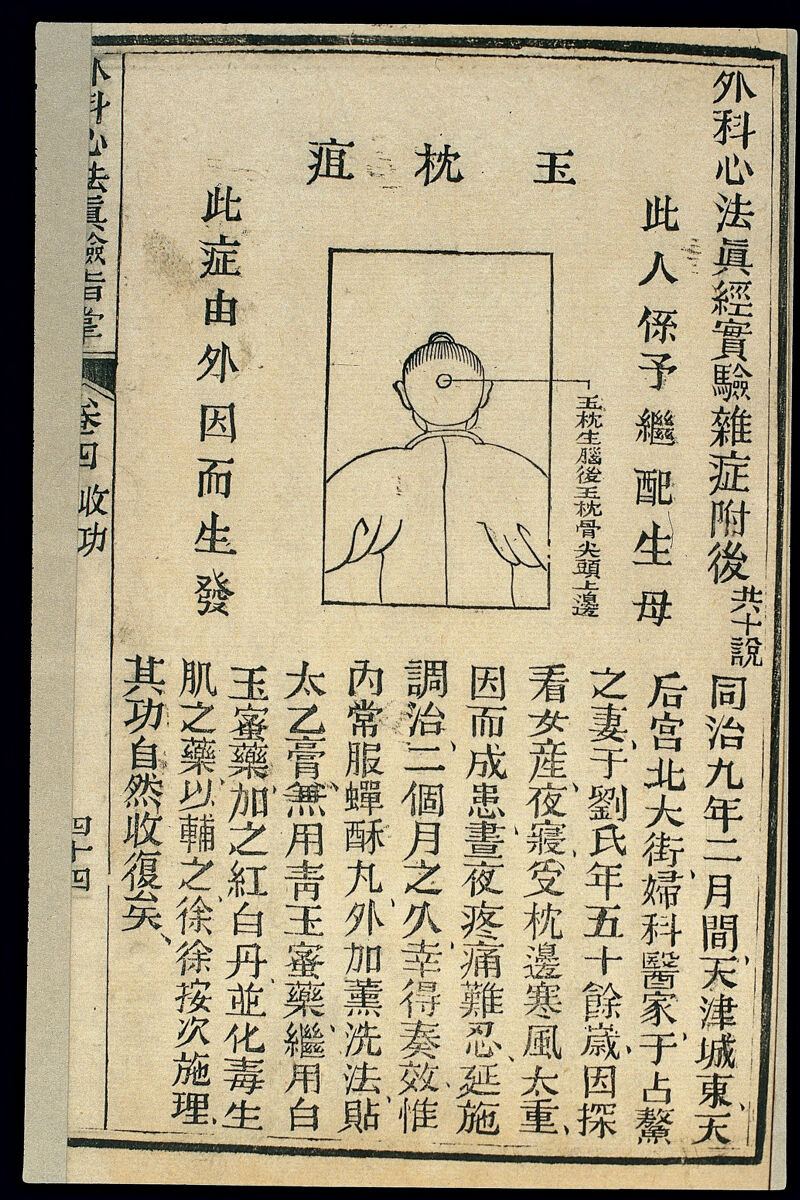 外科心法眞經實驗雜症附後 共十說
玉枕疽
此人係予繼配生母
玉枕生腦後玉枕骨尖頭上邊
此症由外因而生發
同治九年二月間、天津城東、天
后宮北大街、婦科醫家于占鰲
之妻、于劉氏年五十餘歲、因探
看女産、夜寢、受枕邊寒風太重、
因而成患、晝夜疼痛難忍、延施
調治、二個月之久、幸得奏效、惟
內常服蟬酥丸、外加薰洗法、貼
太乙膏、無用靑玉蜜藥、繼用白
玉蜜藥、加之紅白丹、並化毒生
肌之藥、以輔之、徐徐按次施理、
其功自然收復矣、
外科心法眞驗指掌
卷四 收功
四十四